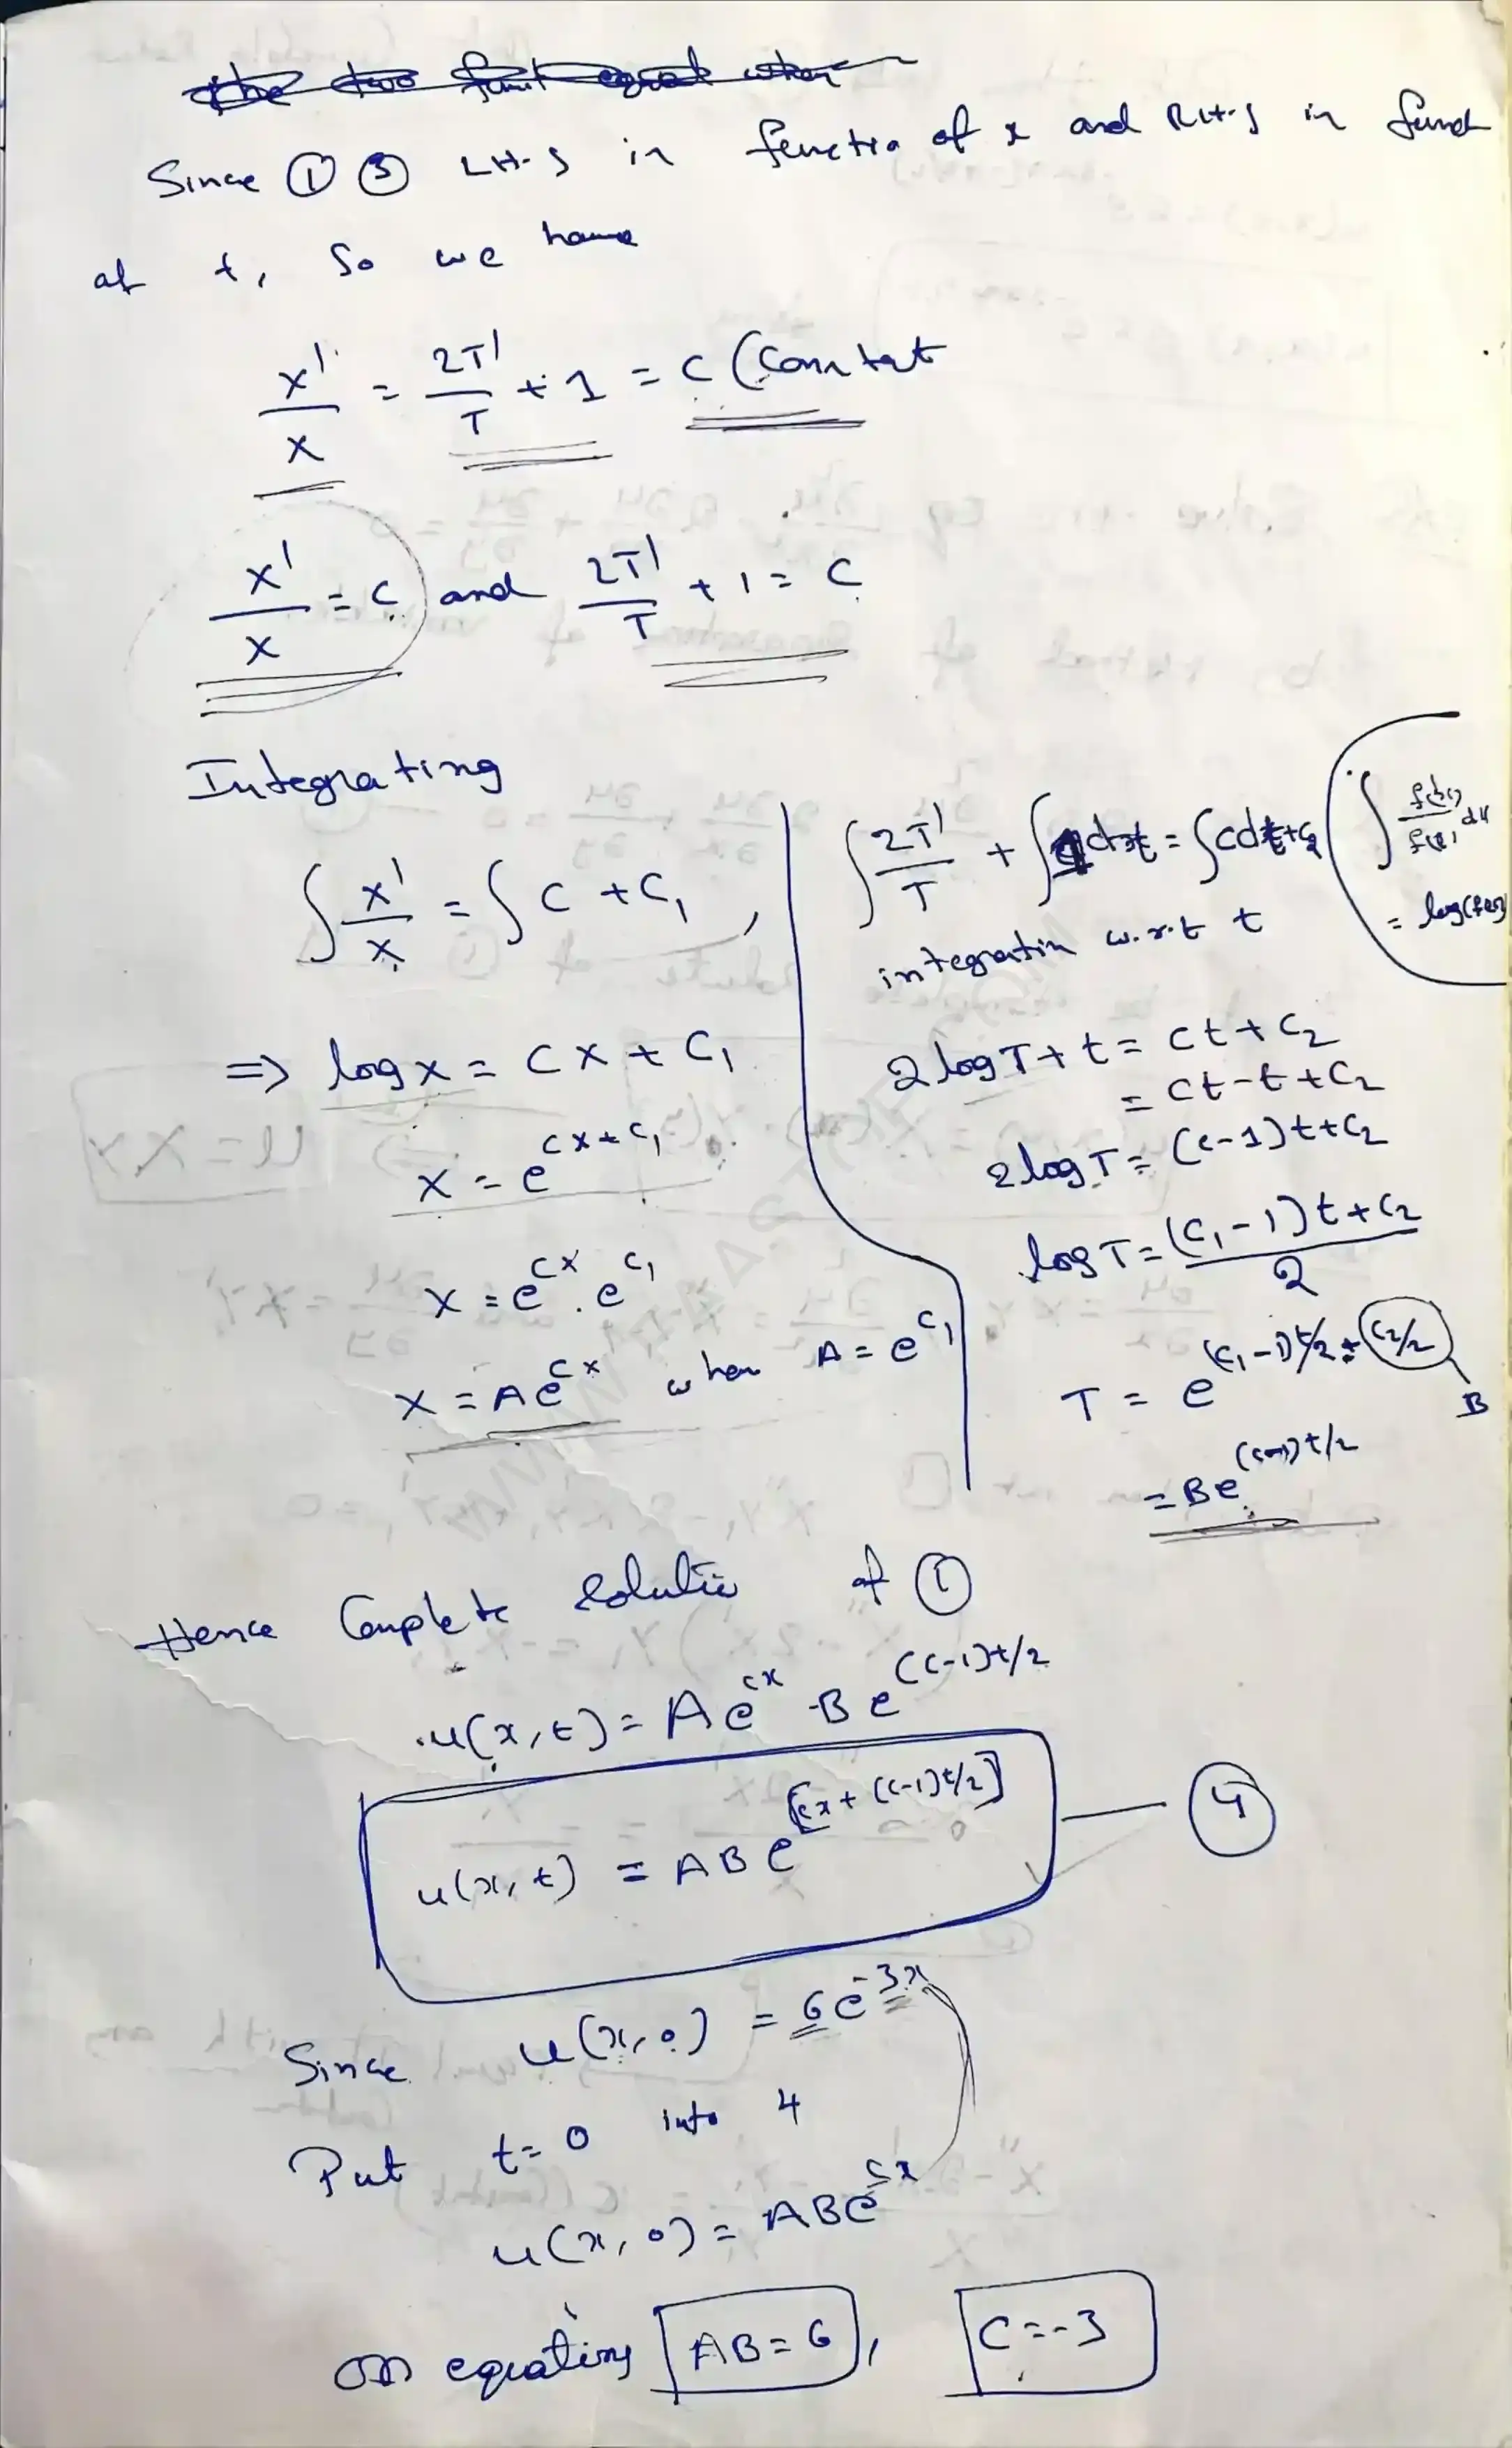 the two funt equal when
Since ① ③ L H-S is function of x and R H-S is funct
of t, So we have
X'/X = 2T'/T + 1 = C (Constant
X'/X = C and 2T'/T + 1 = C
Integrating
∫ X'/X = ∫ C + C₁ ,
⇒ log X = CX + C₁
X = e^(CX + C₁)
X = e^(CX) . e^(C₁)
X = A e^(Cx) when A = e^(C₁)
∫ 2T'/T + ∫ 1 dt = ∫ c dt + C₂
integratin w.r.t t
∫ f'(x)/f(x) dx
= log(f(x))
2 log T + t = ct + C₂
= ct - t + C₂
2 log T = (c-1)t + C₂
log T = ((C₁-1)t + C₂)/2
T = e^((C₁-1)t/2 + C₂/2)
B
= B e^((c-1)t/2)
Hence Complete Solutio of ①
u(x,t) = A e^(cx) · B e^((c-1)t/2)
u(x,t) = AB e^[cx + (c-1)t/2] — ④
Since u(x,0) = 6e^(-3x)
Put t = 0 into 4
u(x,0) = AB e^(cx)
on equating AB = 6, C = -3